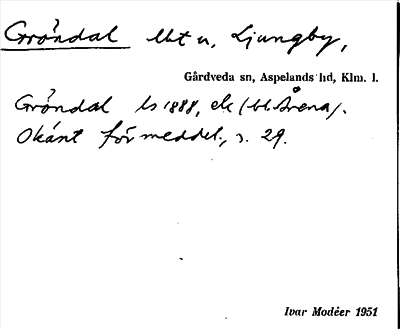 Gröndal lht u, Ljungby,
Gårdveda sn, Aspelands hd, Klm. l.
Gröndal ls 1888, ek (bl. Årena).
Okänt för meddel., s. 29.
Ivar Modéer 1951